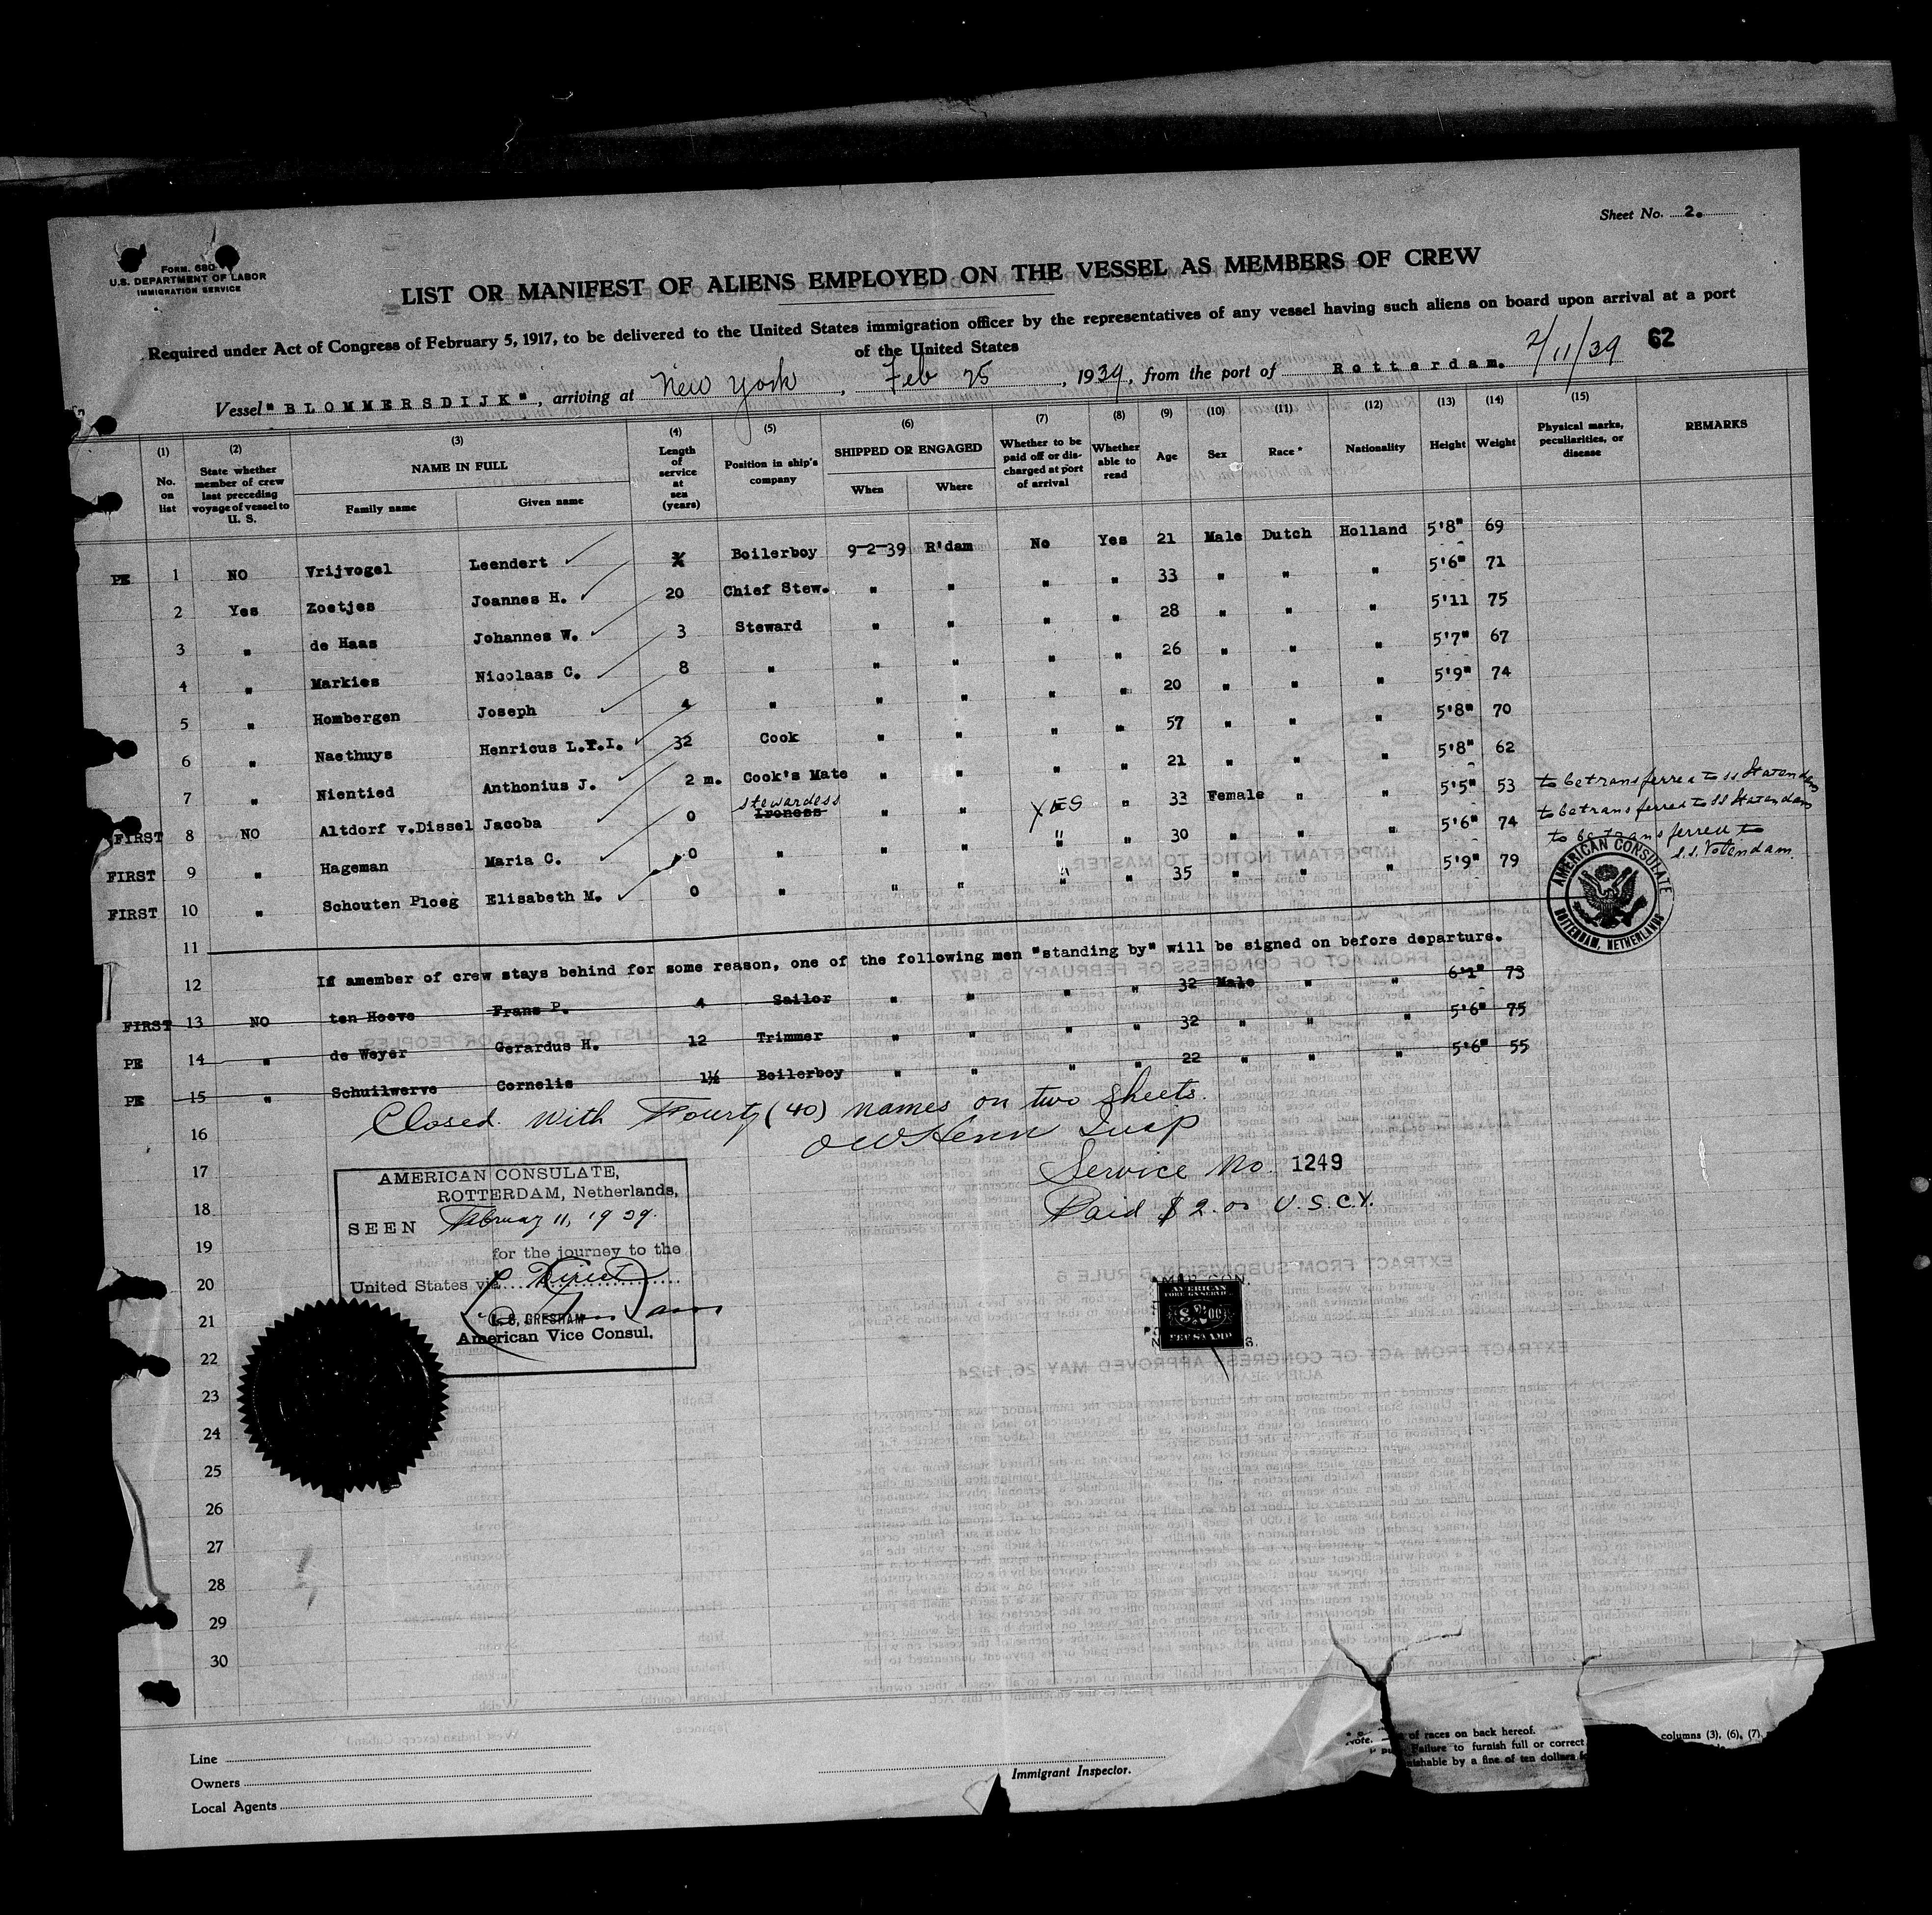 Sheet No. 2.
FORM 680
U.S. DEPARTMENT OF LABOR
IMMIGRATION SERVICE
LIST OR MANIFEST OF ALIENS EMPLOYED ON THE VESSEL AS MEMBERS OF CREW
Required under Act of Congress of February 5, 1917, to be delivered to the United States immigration officer by the representatives of any vessel having such aliens on board upon arrival at a port
of the United States
2/11/39 62
Vessel "BLOMMERSDIJK", arriving at New York, Feb 25, 1939, from the port of Rotterdam.
(1) No. on list
(2) State whether member of crew last preceding voyage of vessel to U. S.
(3) NAME IN FULL
Family name
Given name
(4) Length of service at sea (years)
(5) Position in ship's company
(6) SHIPPED OR ENGAGED
When
Where
(7) Whether to be paid off or discharged at port of arrival
(8) Whether able to read
(9) Age
(10) Sex
(11) Race *
(12) Nationality
(13) Height
(14) Weight
(15) Physical marks, peculiarities, or disease
REMARKS
PE 1 NO Vrijvogel Leendert Boilerboy 9-2-39 R'dam No Yes 21 Male Dutch Holland 5'8" 69
2 Yes Zoetjes Joannes H. 20 Chief Stew. " " " " 33 " " " 5'6" 71
3 " de Haas Johannes W. 3 Steward " " " " 28 " " " 5'11 75
4 " Markies Nicolaas C. 8 " " " " " 26 " " " 5'7" 67
5 " Hombergen Joseph 4 " " " " " 20 " " " 5'9" 74
6 " Naethuys Henricus L.P.I. 32 Cook " " " " 57 " " " 5'8" 70
7 " Nientied Anthonius J. 2 m. Cook's Mate " " " " 21 " " " 5'8" 62
FIRST 8 NO Altdorf v.Dissel Jacoba 0 stewardess Ironess " " YES " 33 Female " " 5'5" 53 to be transferred to ss Statendam
FIRST 9 " Hageman Maria C. 0 " " " " " 30 " " " 5'6" 74 to be transferred to SS Statendam
FIRST 10 " Schouten Ploeg Elisabeth M. 0 " " " " " 35 " " " 5'9" 79 to be transferred to
s.s. Volendam.
AMERICAN CONSULATE
ROTTERDAM, NETHERLANDS
11
12 If amember of crew stays behind for some reason, one of the following men "standing by" will be signed on before departure.
FIRST 13 NO ten Hoeve Frans P. 4 Sailor " " " " 32 Male " " 6'1" 73
PE 14 " de Weyer Gerardus H. 12 Trimmer " " " " 32 " " " 5'6" 75
PE 15 " Schuilwerve Cornelis 1½ Boilerboy " " " " 22 " " " 5'6" 55
16 Closed with Fourty (40) names on two sheets.
17
18
19
20
21
22
23
24
25
26
27
28
29
30
Service No. 1249
Paid $2.00 U.S.C.Y.
AMERICAN CONSULATE,
ROTTERDAM, Netherlands,
SEEN February 11, 1939.
for the journey to the
United States via Direct
American Vice Consul.
AMERICAN
FOREIGN SERVICE
$2.00
FEE STAMP
Line
Owners
Local Agents
Immigrant Inspector.
of races on back hereof.
Note.
Failure to furnish full or correct
columns (3), (6), (7)
by a fine of ten dollars